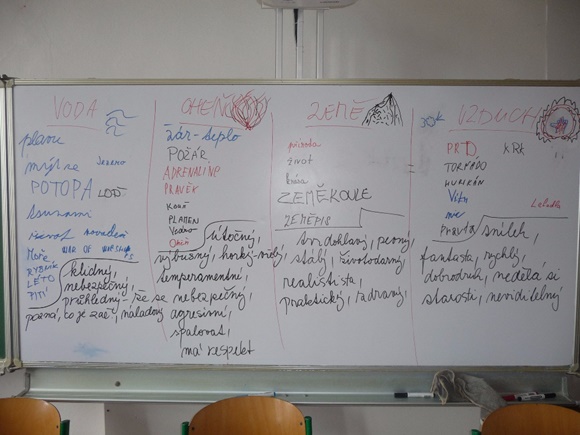 VODA
plavu
mýt se
Jezero
POTOPA
LOĎ
tsunami
Moře
WAR OF
RYBNÍK
LÉTO
PITÍ
klidný,
nebezpečný,
přehledný - že se
pozná, co je zač, náladový
OHEŇ
žár - teplo
POŽÁR
ADRENALINE
PRAVĚK
KOUŘ
PLAMEN
Vedro
OHEŇ
útočný,
výbušný, horký
temperamentní,
nebezpečný,
agresivní,
spalovat,
má respekt
ZEMĚ
příroda
život
krása
ZEMĚKOULE
ZEMĚPIS
tvrdohlavý, pevný,
stálý, životodárný
realistista,
praktický, zdravý,
VZDUCH
PRD
KRK
TORNÁDO
HURIKÁN
Vítr
Letadla
PRAVDA
snílek,
fantasta, rychlý,
dobrodruh, nedělá si
starosti, neviditelný